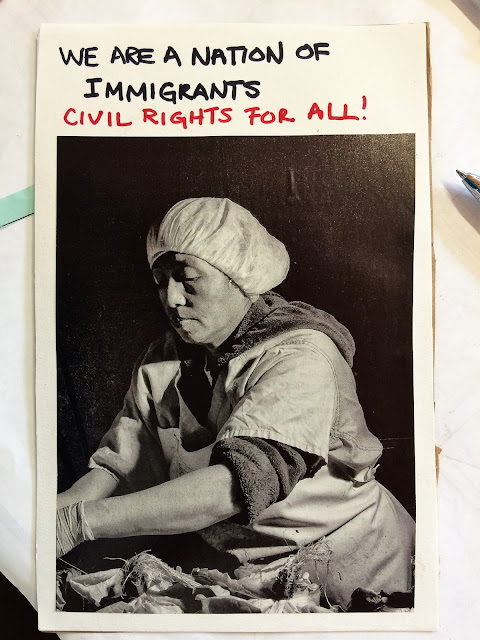 WE ARE A NATION OF
IMMIGRANTS
CIVIL RIGHTS FOR ALL!